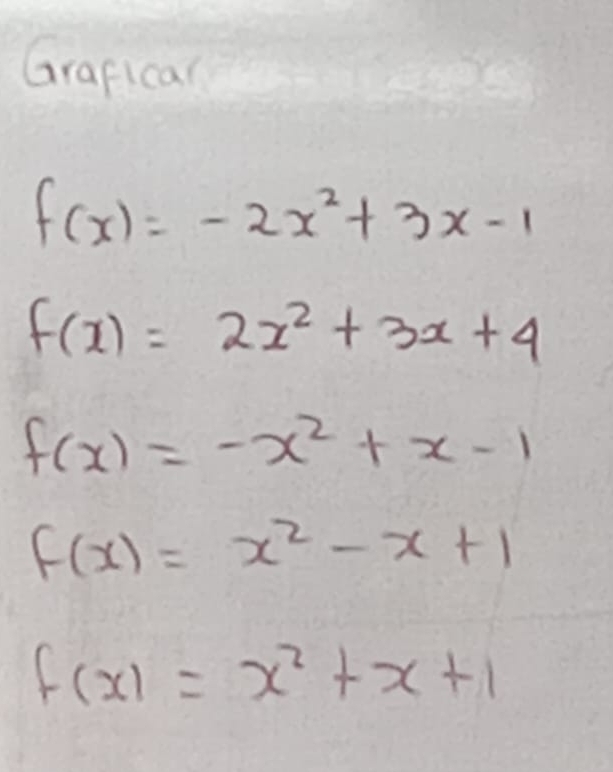 Graficar
f(x) = -2x² + 3x - 1
f(x) = 2x² + 3x + 4
f(x) = -x² + x - 1
f(x) = x² - x + 1
f(x) = x² + x + 1